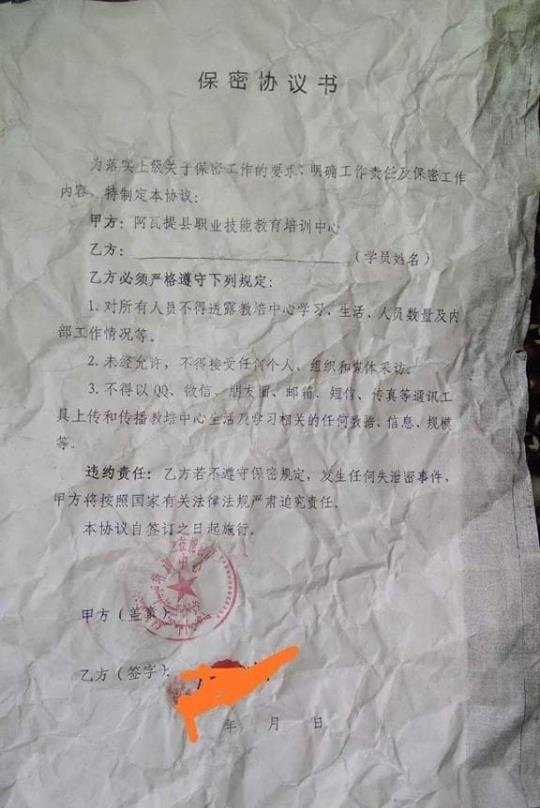 保密协议书
为落实上级关于保密工作的要求，明确工作责任及保密工作
内容，特制定本协议：
甲方：阿瓦提县职业技能教育培训中心
乙方：（学员姓名）
乙方必须严格遵守下列规定：
1. 对所有人员不得透露教培中心学习、生活、人员数量及内
部工作情况等。
2. 未经允许，不得接受任何个人、组织和媒体采访。
3. 不得以QQ、微信、朋友圈、邮箱、短信、传真等通讯工
具上传和传播教培中心生活及学习相关的任何数据、信息、规模
等。
违约责任：乙方若不遵守保密规定，发生任何失泄密事件，
甲方将按照国家有关法律法规严肃追究责任。
本协议自签订之日起施行。
甲方（盖章）
乙方（签字）：
年 月 日